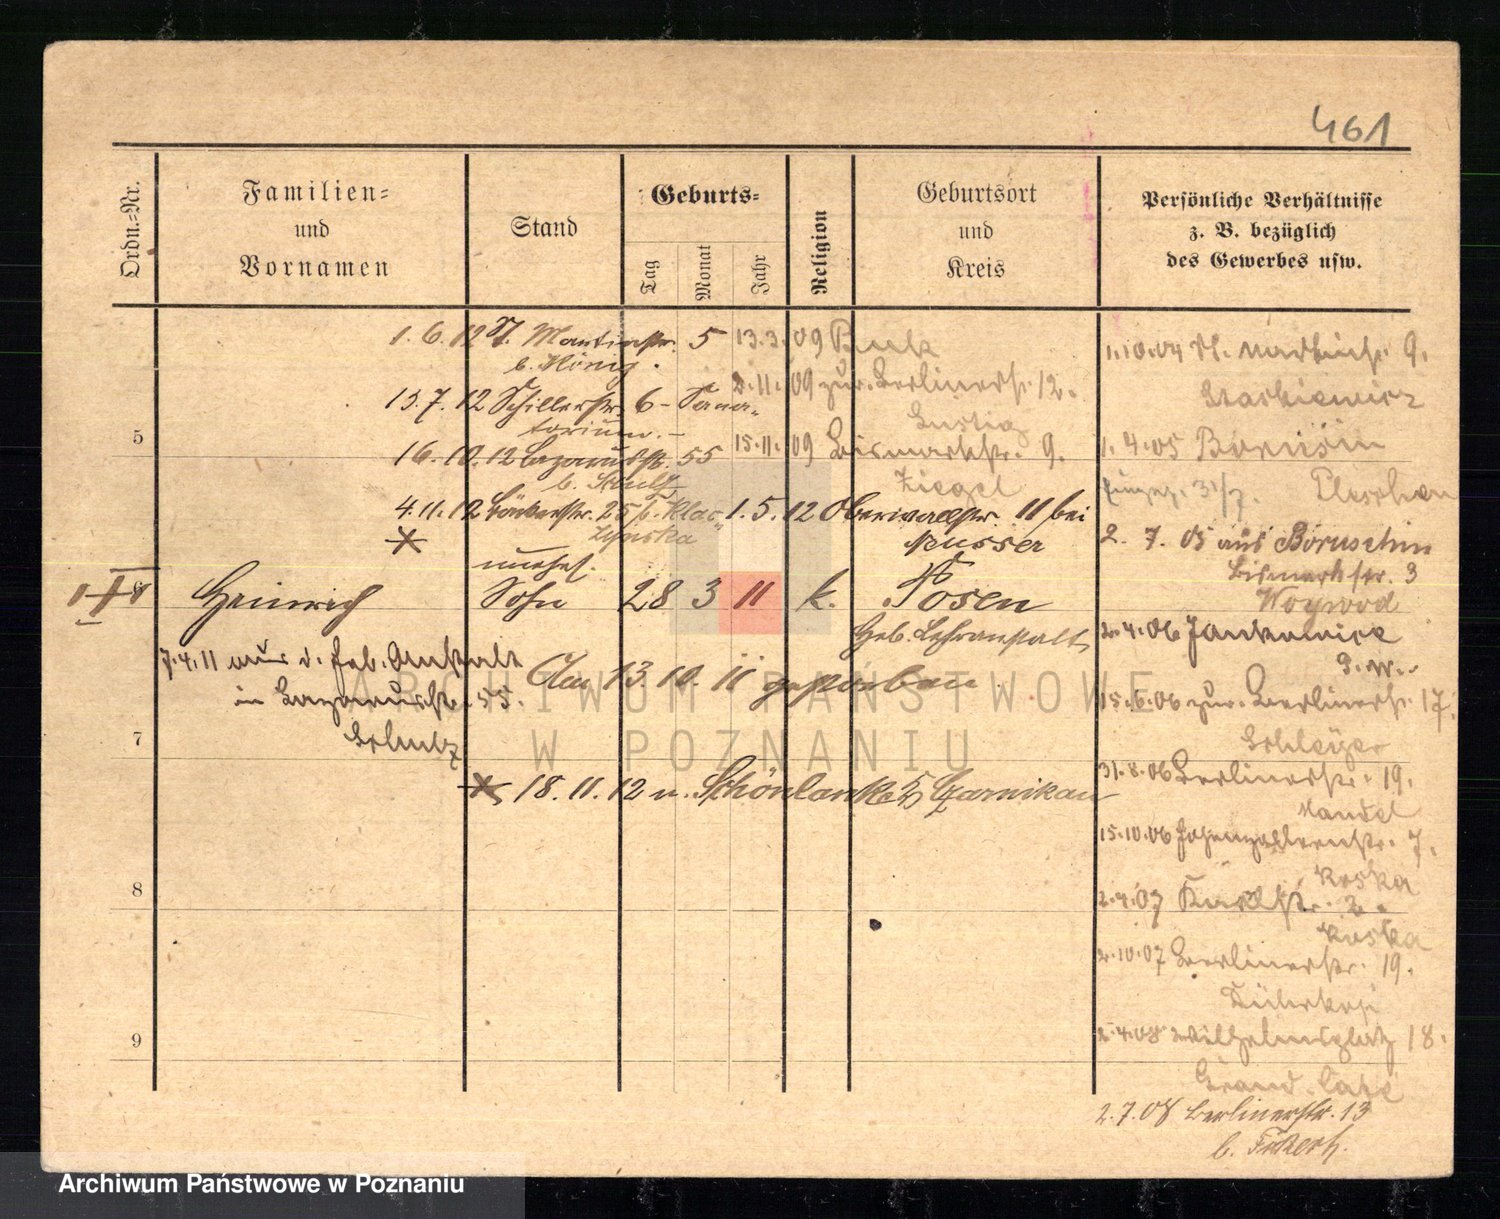 461
Ordn.=Nr.
Familien=
und
Vornamen
Stand
Geburts=
Tag
Monat
Jahr
Religion
Geburtsort
und
Kreis
Persönliche Verhältnisse
z. B. bezüglich
des Gewerbes usw.
1. 6. 12 St. Martinstr. 5
b. König.
13. 7. 12 Schillerstr. 6 - Sana-
torium. -
16. 10. 12 Lazarusstr. 55
b. Schulz
4. 11. 12 Bäckerstr. 25 b. Klac-
zynska
13. 3. 09 Buk
2. 11. 09 zur. Berlinerstr. 12.
Lustig
15. 11. 09 Bismarkstr. 9.
Ziegel
1. 5. 12 Oberwallstr. 11 bei
Musser
5
unehel.
Heinrich
Sohn
28 3 11 k.
Posen
Geb. Lehranstalt
7. 4. 11 aus d. Geb. Anstalt
in Lazarusstr. 55.
Schulz
Am 13. 10. 11 gestorben.
7
18. 11. 12 n. Schönlanke Czarnikau
8
9
1. 10. 04 St. Martinstr. 9.
1. 4. 05
31/7. Pleschen
2. 7. 05 aus Boruschin
Bismarkstr. 3
Woywod
2. 4. 06 Jankowice
15. 6. 06 zur. Berlinerstr. 17.
31. 8. 06 Berlinerstr. 19.
Mandel
15. 10. 06 Hohenzollernstr. 7.
Koska
2. 4. 07 Karlstr. 2.
Koska
2. 10. 07 Berlinerstr. 19.
2. 4. 08 Wilhelmsplatz 18.
Grand Café
2. 7. 08 Berlinerstr. 13
ARCHIWUM PAŃSTWOWE
W POZNANIU
Archiwum Państwowe w Poznaniu